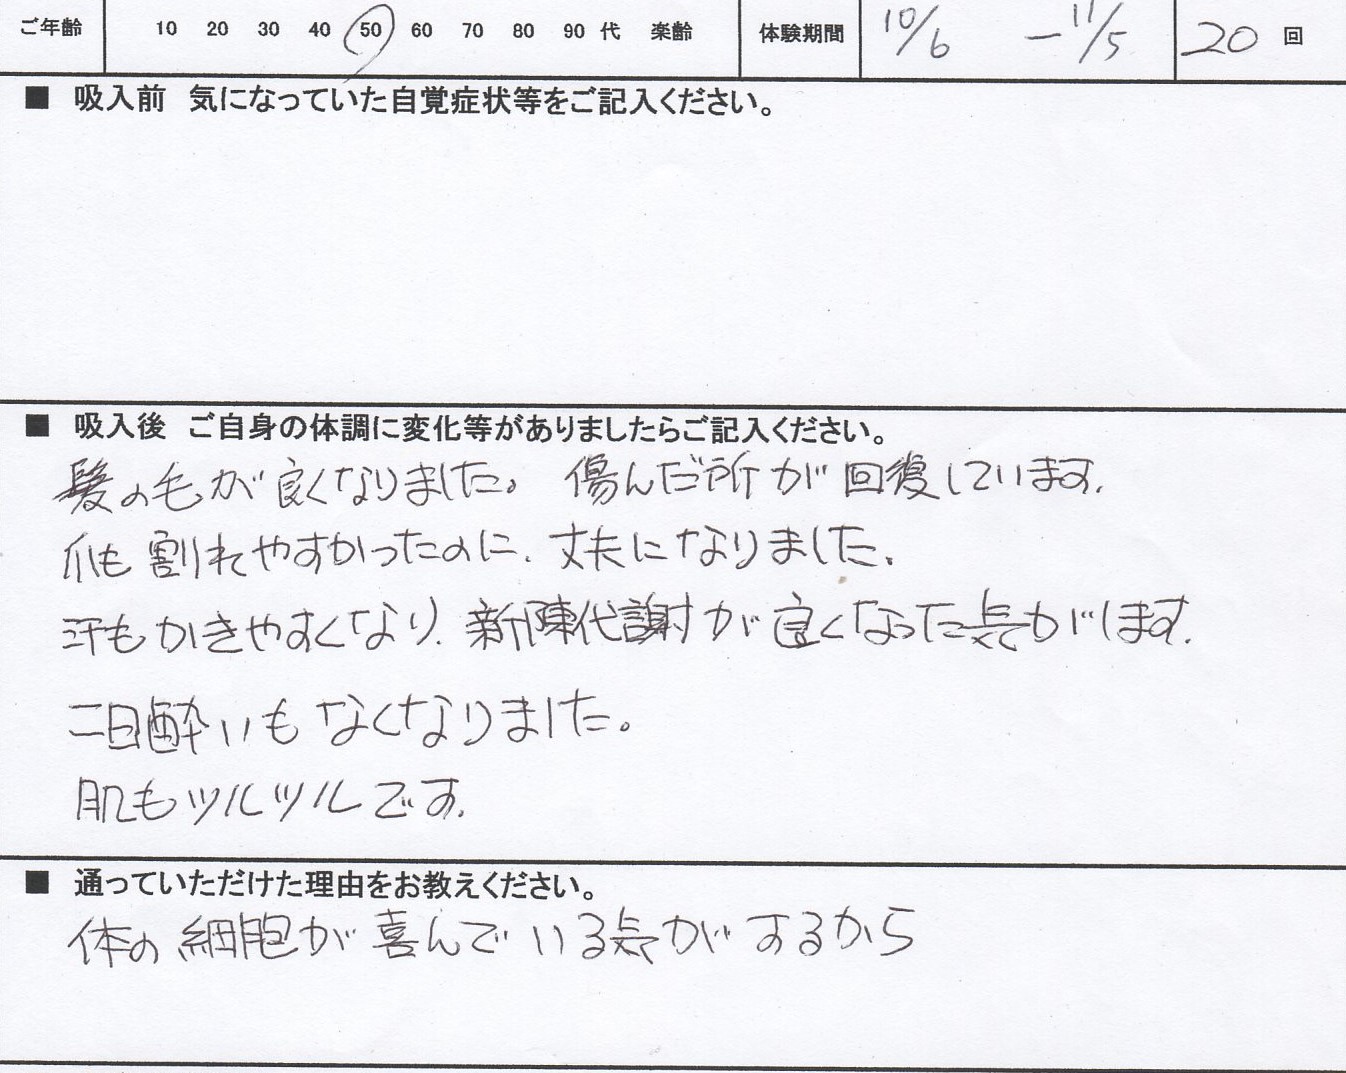 ご年齢 10 20 30 40 50 60 70 80 90 代 楽齢 体験期間 10/6 ー 11/5 20 回
■ 吸入前 気になっていた自覚症状等をご記入ください。
■ 吸入後 ご自身の体調に変化等がありましたらご記入ください。
髪の毛が良くなりました。 傷んだ所が回復しています.
爪も割れやすかったのに. 丈夫になりました.
汗もかきやすくなり. 新陳代謝が良くなった気がします.
二日酔いもなくなりました。
肌もツルツルです.
■ 通っていただけた理由をお教えください。
体の細胞が喜んでいる気がするから